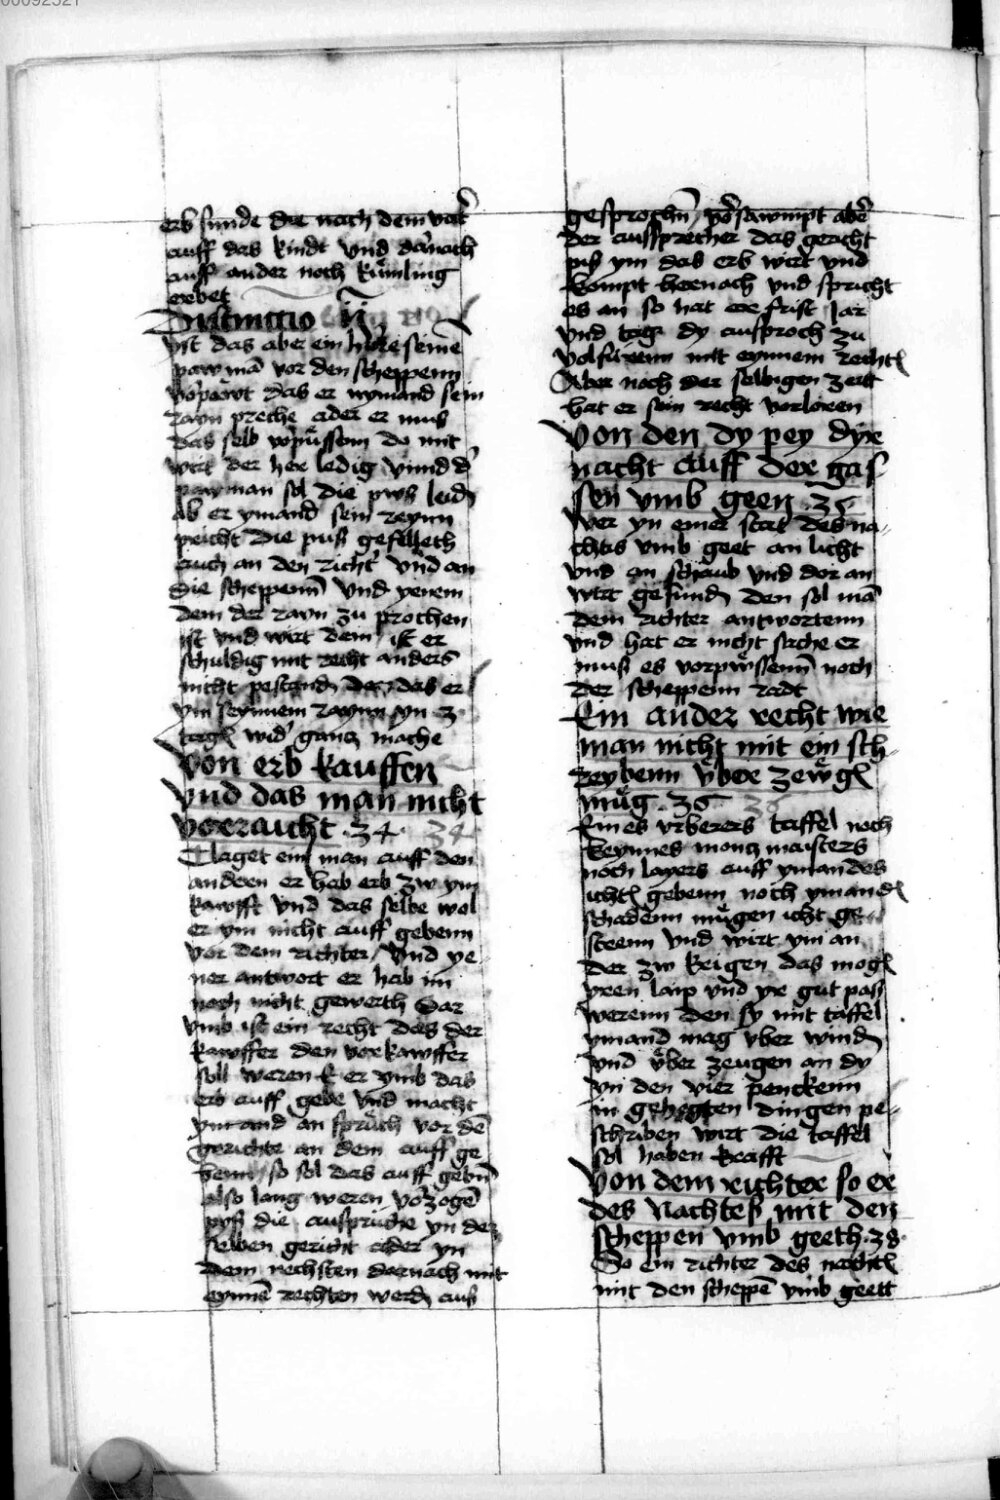 00092521
erb sunde die nach dem vat̄
auff das kindt vnd darnach
auff ander noch kümling
erbet
Distinctio ij
Jst das aber ein herre seinē
pawmā vor den scheppenn
das er nymand sein
rayn preche ader er mus
das selb do mit
wirt der her ledig vnnd d̄
pawman sol die pws leidn̄
ab er ymand sein reynn
pricht Die pus gefelleth
auch an den richt̄ vnd an
die scheppennn̄ vnd yenem
dem der rayn zu prochen
ist vnd wirt dem ist er
schuldig mit recht anders
nicht das er
ym seynnem raynn yn 3
wid̄ gancz mache
Von erb kauffen
vnd das man nicht
voeraicht 34 34
Claget ein man auff den
anderen er hab erb zw ym
kawfft vnd das selbe wol
er ym nicht auff gebenn
vor dem richter / vnd ye
ner antwort er hab im
noch nicht gewerth Dar
vmb ist ein recht das der
kawffer den vorkawffer
soll weren E er vmb das
erb auff gebe vnd macht
ymand an sprüch vor dē
gerichte an dem auff ge
benn so sol das auff gebn̄
also lang weren
pys die ausprüche yn der
selben gericht ader yn
dem nechsten dornach mit
eynnē rechten werdn̄ aus
gesprochn̄ abē
der aussprecher das geacht
pis ym das erb wirt vnd
kompt hernach vnd spricht
es an so hat er frist Jar
vnd tag dy ausproch zu
volfurenn mit eynnem rechtn̄
Aber noch der selbigen zeit
hat er sein recht vorloren
Von den dy pey dyr
nacht auff der gas
sen vmb geen 35
Wer yn einer stat des na-
chtis vmb geet an licht
vnd an schaub vnd dor an
wirt gefundn̄ den sol mā
dem richter antwortenn
vnd hat er nicht sache er
mus es noch
der scheppenn radt
Ein ander recht wie
man nicht mit ein sch-
reybenn vber zewgn̄
müg 36 36
Eines vrberers taffel noch
keynnes moncz maisters
noch layers auff ymandes
ichtn̄ gebenn noch ymandn̄
schadenn mügen icht
steenn vnd wirt ym an
der zw das mogn̄
yren laip vnd yr gut pass
werenn den sy mit taffel
ymand mag vber windn̄
vnd vber zeugen an dy
yn den vier penckenn
in gehegten dingen pe-
schriben wirt die taffel
sol haben krafft
Von dem richter so er
des Nachtes mit den
scheppen vmb geeth 38
So ein richter des nachtn̄
mit den scheppē vmb geett